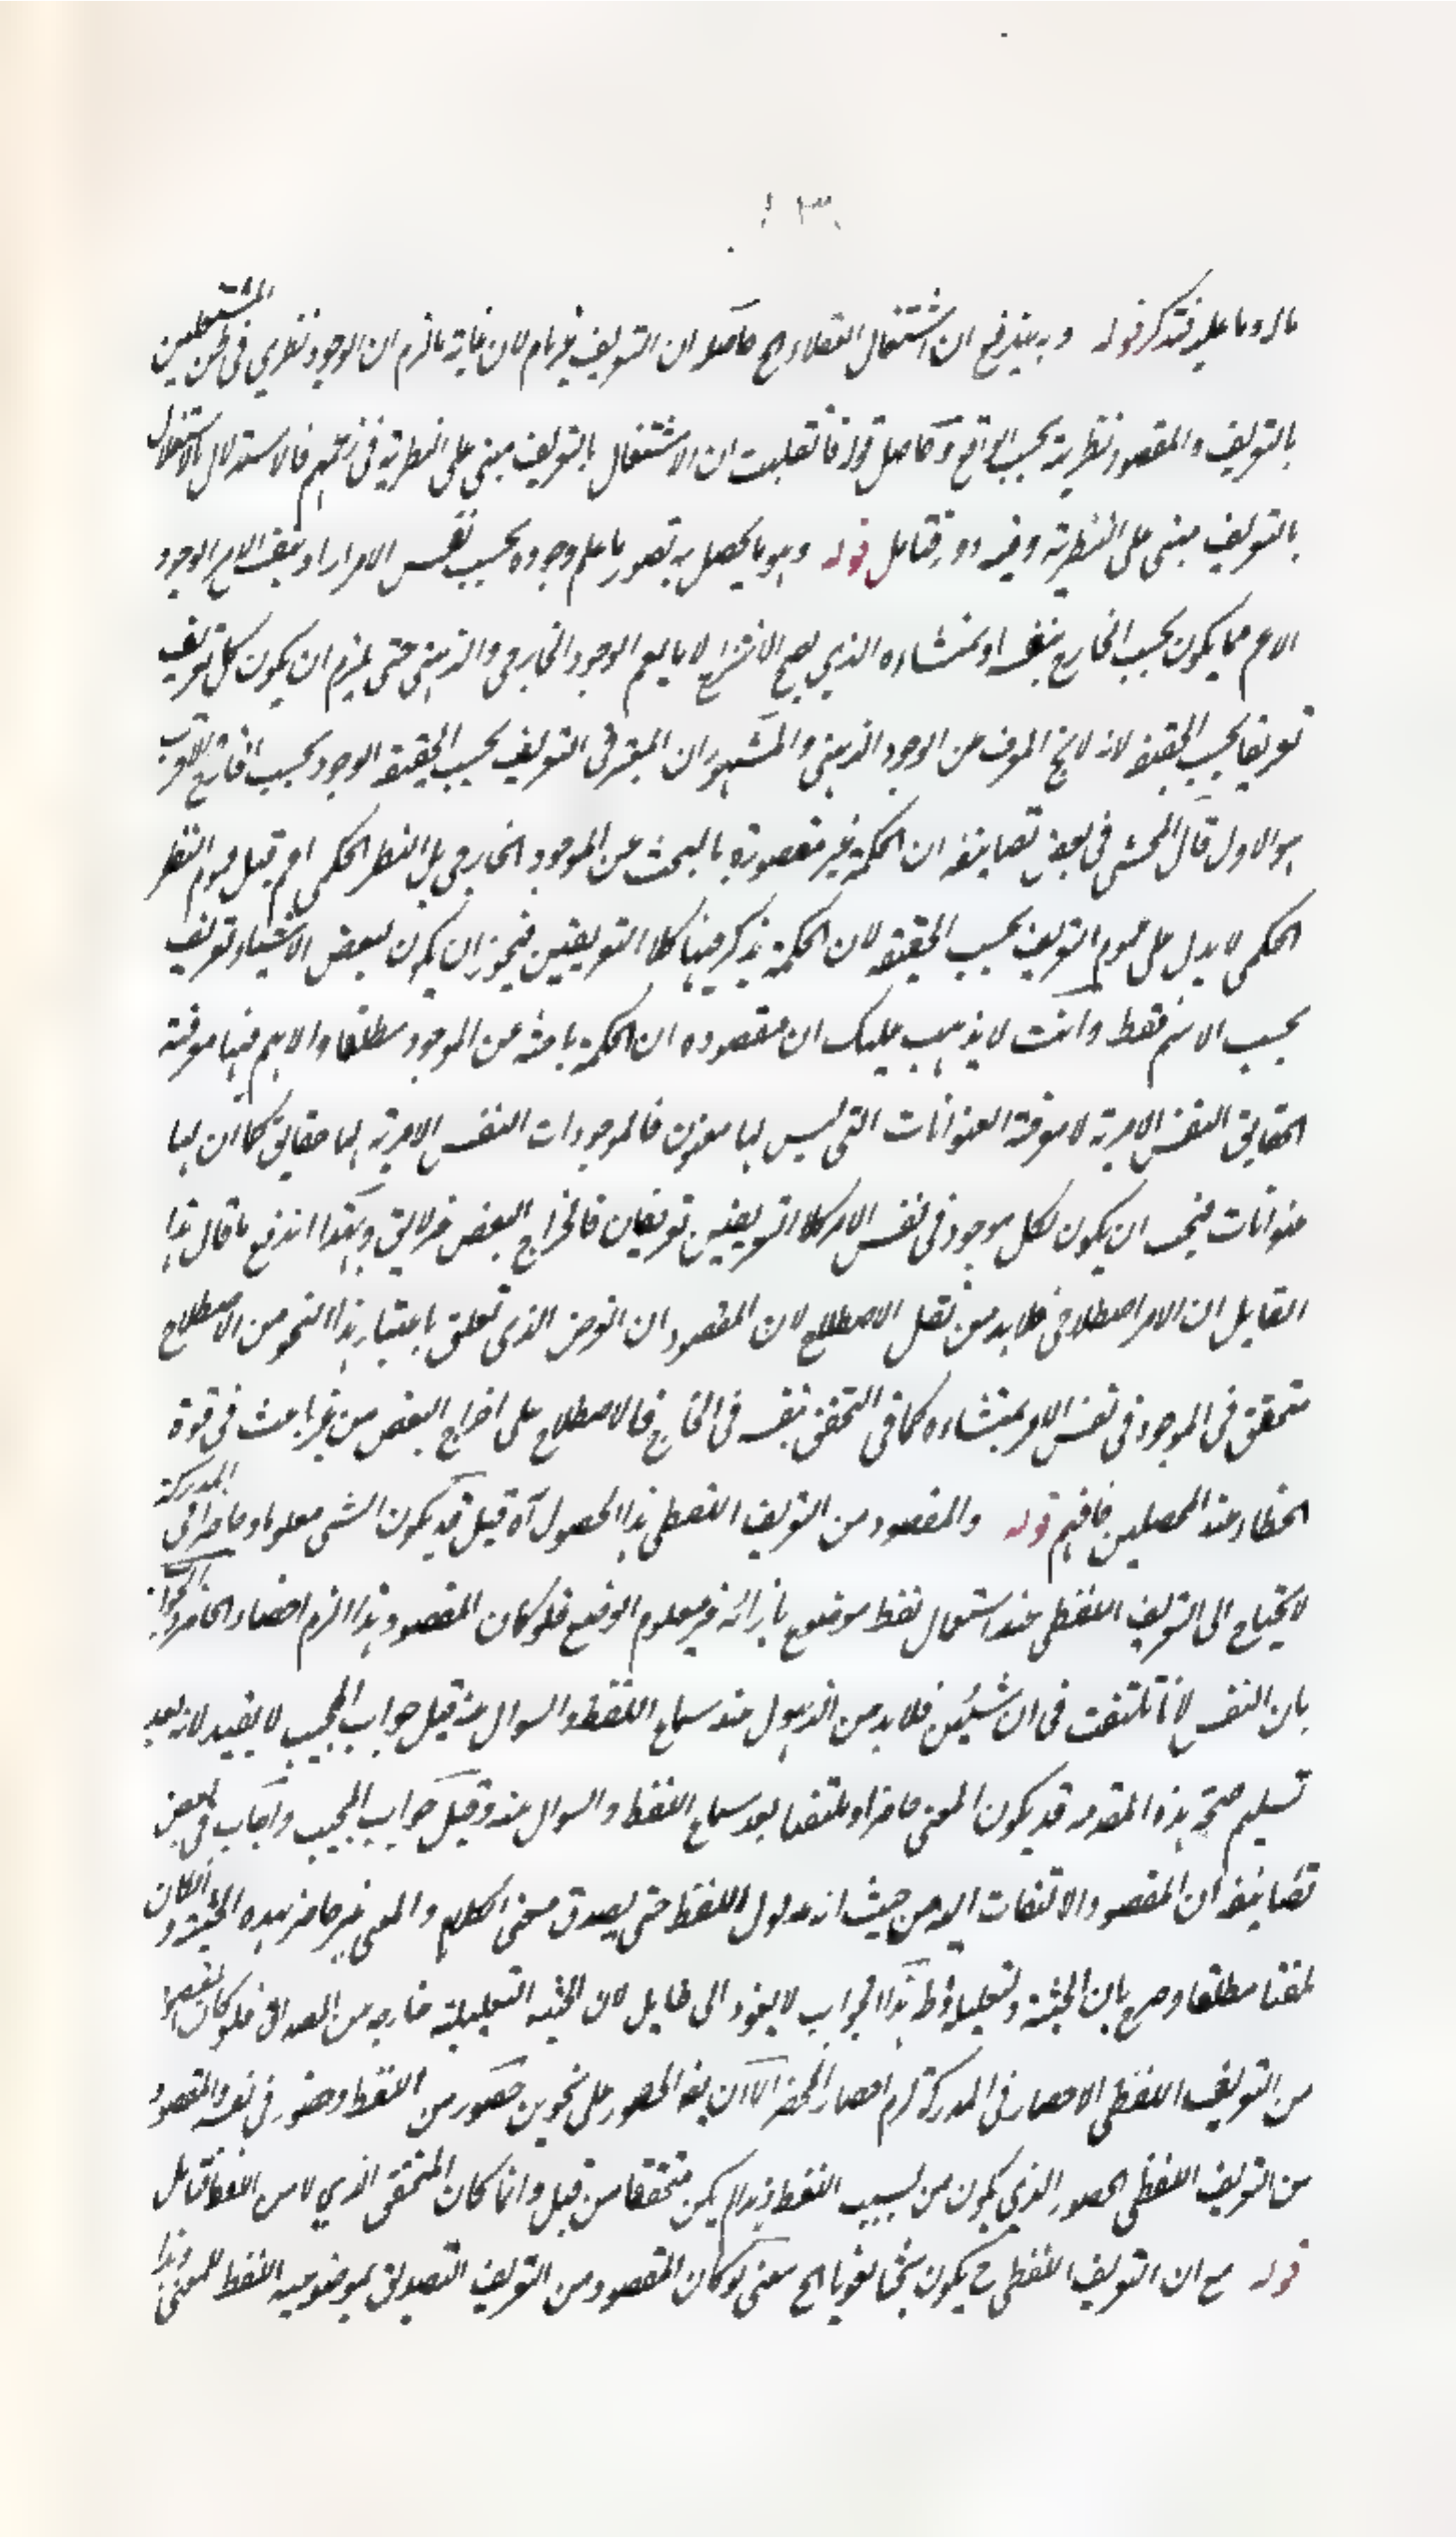 ١٣٠
ماله وما عليه فتذكر قوله وبه يندفع ان اشتغال العقلاء الخ حاصله ان التعريف غير تام لان غاية ما لزم ان الوجود نظري في ظن المشتغلين
بالتعريف والمقصود نظريته بحسب الواقع وحاصل قوله فان قلت ان الاشتغال بالتعريف مبنى على النظرية في زعمهم فالاستدلال بالاشتغال
بالتعريف مبنى على النظرية وفيه دور فتامل قوله وهو ما يحصل به تصور ما علم وجوده بحسب نفس الامر اراد بنفس الامر الوجود
الاعم مما يكون بحسب الخارج بنفسه او بمنشاءه الذي يصح الانتزاع لا ما يعم الوجود الخارجى والذهنى حتى يلزم ان يكون كل تعريف
تعريفا بحسب الحقيقة لانه لا يخ المعرف عن الوجود الذهنى والمشهور ان المعتبر فى التعريف بحسب الحقيقة الوجود بحسب الخارج
هو الاول قال المحشى فى بعض تصانيفه ان الحكمة غير مقصورة بالبحث عن الموجود الخارجى بل النظر الحكمى اعم قيل عموم النظر
الحكمى لا يدل على عموم التعريف بحسب الحقيقة لان الحكمة يذكر فيها كلا التعريفين فيجوز ان يكون لبعض الاشياء تعريف
بحسب الاسم فقط وانت لا يذهب عليك ان مقصوده ان الحكمة باحثة عن الموجود مطلقا والاهم فيها معرفة
الحقايق النفس الامرية لا معرفة العنوانات التى ليس لها معنون فالموجودات النفس الامرية لها حقايق كما ان لها
عنوانات فيجب ان يكون لكل موجود فى نفس الامر كلا التعريفين تعريفان فاخراج البعض غير لايق وبهذا اندفع ما قال هذا
القايل ان الامر اصطلاحى فلا بد من نقل الاصطلاح لان المقصود ان الغرض الذى تعلق باعتبار هذا النحو من الاصطلاح
متحقق فى الموجود فى نفس الامر بمنشاءه كما فى المتحقق بنفسه فى الخارج فالاصطلاح على اخراج البعض من غير باعث فى قوة
الخطاء عند المحصلين فافهم قوله والمقصود من التعريف اللفظى هذا الحصول آه قيل قد يكون الشى معلوما وحاضرا فى المدركة
لا يحتاج الى التعريف اللفظى عند استعمال لفظ موضوع بازائه غير معلوم الوضع فلو كان المقصود هذا لزم احضار الحاضر والجواب
بان النفس لا تلتفت فى ان شيئين فلا بد من الذهول عند سماع اللفظ والسوال منه قبل جواب المجيب لا يفيد لانه بعد
تسليم صحة هذه المقدمة قد يكون المعنى حاضرا وملتفتا بعد سماع اللفظ والسوال منه وقبل جواب المجيب واجاب فى بعض
تصانيفه ان المقصود الالتفات اليه من حيث انه مدلول اللفظ حتى يصدق معنى الكلام والمعنى غير حاضر بهذه الحيثية وان كان
ملتفتا مطلقا وصرح بان الحيثية تعليلية فقط هذا الجواب لا يعود الى طايل لان الحيثية التعليلية خارجه من المصداق فلو كان المقصود
من التعريف اللفظى الاحضار فى المدركة لزم احضار الحاضر الا ان يقه الحضور على نحوين حضور من اللفظ وحضور فى نفسه والمقصود
من التعريف اللفظى الحضور الذي يكون من سبب اللفظ وهو لم يكن متحققا من قبل وانما كان المتحقق الذي لا من اللفظ فتامل
قوله مع ان التعريف اللفظى ح يكون بحثا لغويا الخ يعنى لو كان المقصود من التعريف التصديق بموضوعيه اللفظ للمعنى وهذا